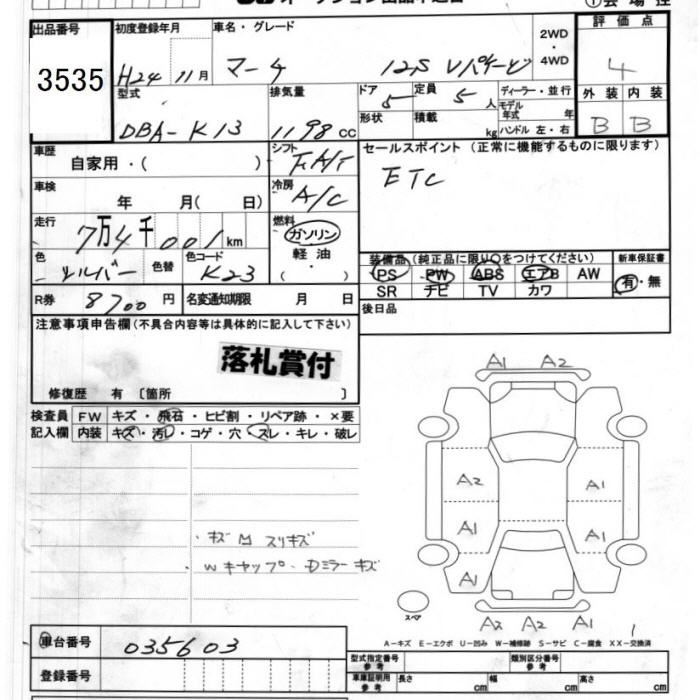 出品番号 初度登録年月 車名・グレード 2WD・4WD 評価点
3535 H24 11月 マーチ 12S Vパケージ 4
型式 排気量 ドア 定員 ディーラー・並行 外装 内装
DBA-K13 1198cc 5 5人 モデル年式 年 B B
形状 積載 kg ハンドル 左・右
車歴 シフト セールスポイント(正常に機能するものに限ります)
自家用・( ) FAT ETC
車検 冷房
年 月( 日) A/C
走行 燃料
7万4千001km ガソリン
色 色替 色コード 軽油 装備品(純正品に限り○をつけてください) 新車保証書
シルバー K23 ( ・ ) PS PW ABS エアB AW 有・無
SR ナビ TV カワ
R券 8700円 名変通知期限 月 日 後日品
注意事項申告欄(不具合内容等は具体的に記入して下さい)
落札賞付
修復歴 有 〔箇所 〕
検査員 FW キズ・飛石・ヒビ割・リペア跡・×要
記入欄 内装 キズ・汚レ・コゲ・穴・スレ・キレ・破レ
A1 A2
A2 A1
A1 A1
A1 A1
A2 A2 A1 1
キズ M スリキズ
Wキャップ・Dミラーキズ
スペア
A-キズ E-エクボ U-凹み W-補修跡 S-サビ C-腐食 XX-交換済
車台番号 035603
型式指定番号 参考 類別区分番号 参考
登録番号
車庫証明用 参考 長さ cm 幅 cm 高さ cm